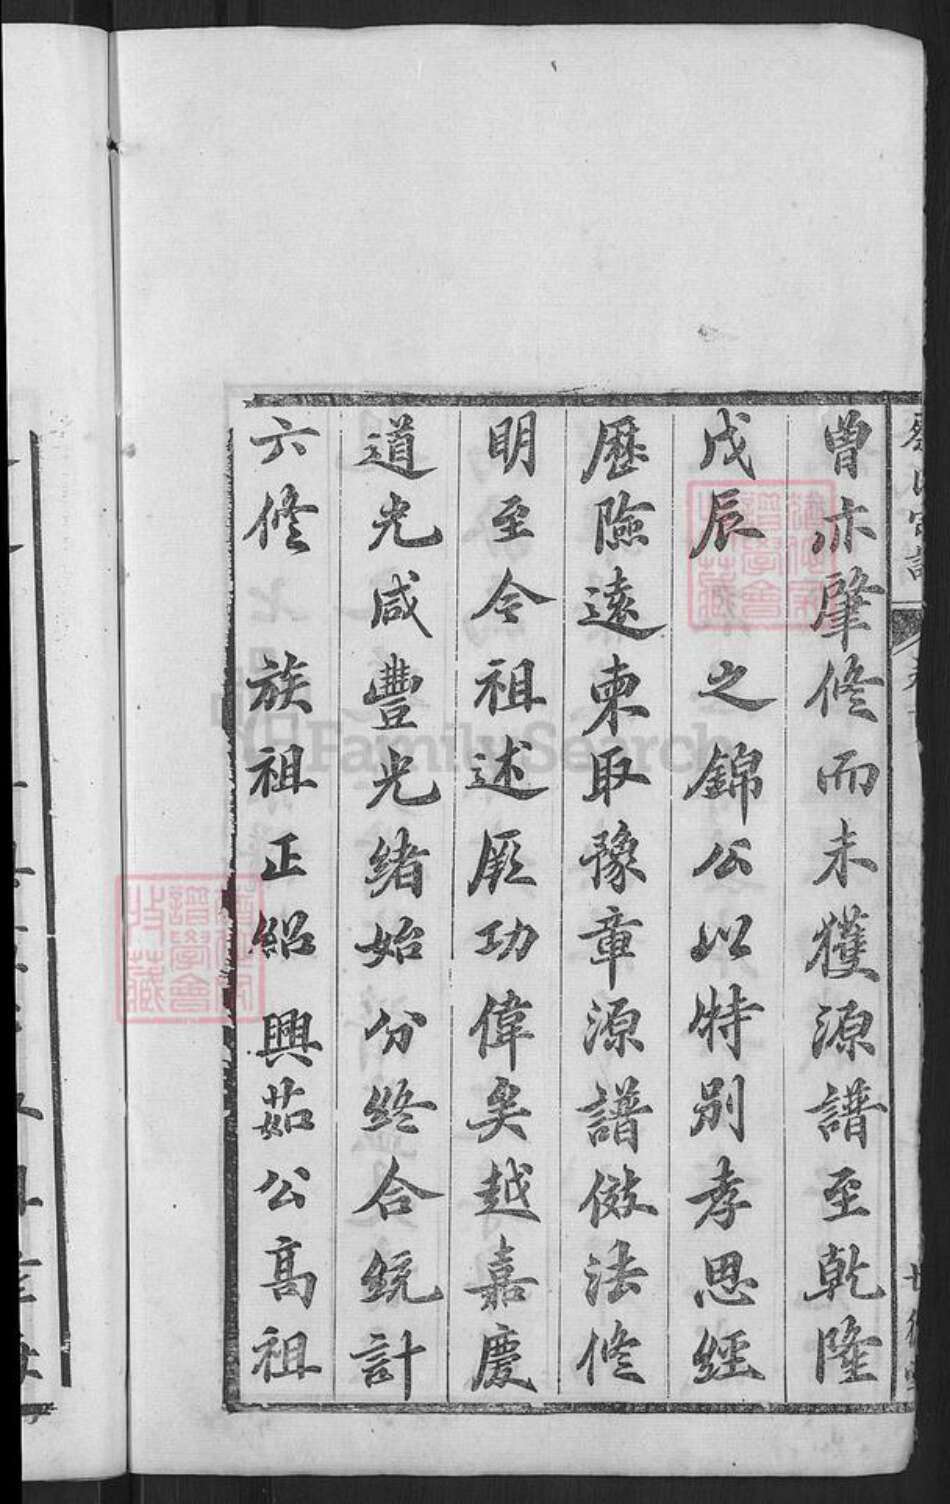 曾亦肇修而未獲源譜至乾隆
戊辰之錦公以特別孝思經
歷險遠東取豫章源譜倣法修
明至今祖述厥功偉矣越嘉慶
道光咸豐光緒始分終合統計
六修族祖正紹興茹公高祖
FamilySearch